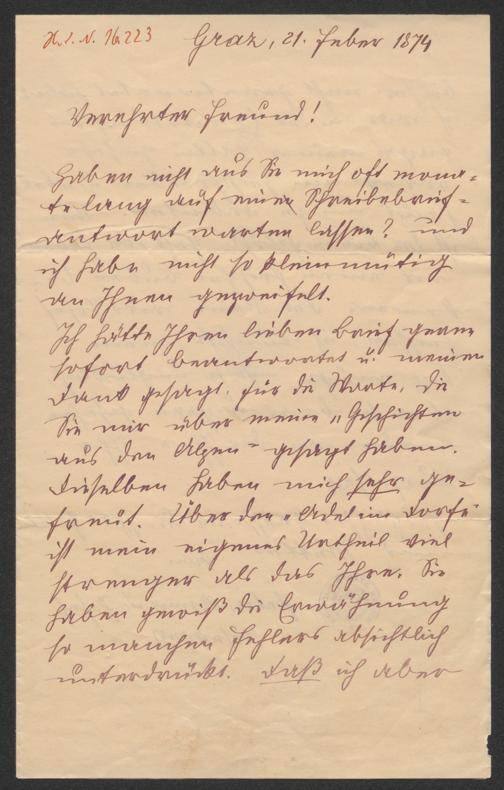 H.I.N. 16.223
Graz, 21. Feber 1874
Verehrter Freund!
Haben nicht auch Sie mich oft mona-
telang auf einen Schreibebrief-
antwort warten lassen? und
ich habe nicht so kleinmütig
an Ihnen gezweifelt.
Ich hätte Ihren lieben Brief gerne
sofort beantwortet u. meinen
Dank gesagt, für die Worte, die
Sie mir über meine „Geschichten
aus den Alpen" gesagt haben.
Dieselben haben mich sehr ge-
freut. Über den „Adel im Dorfe"
ist mein eigenes Urtheil viel
strenger als das Ihre. Sie
haben gewiß die Erwähnung
so manchen Fehlers absichtlich
unterdrückt. Daß ich aber